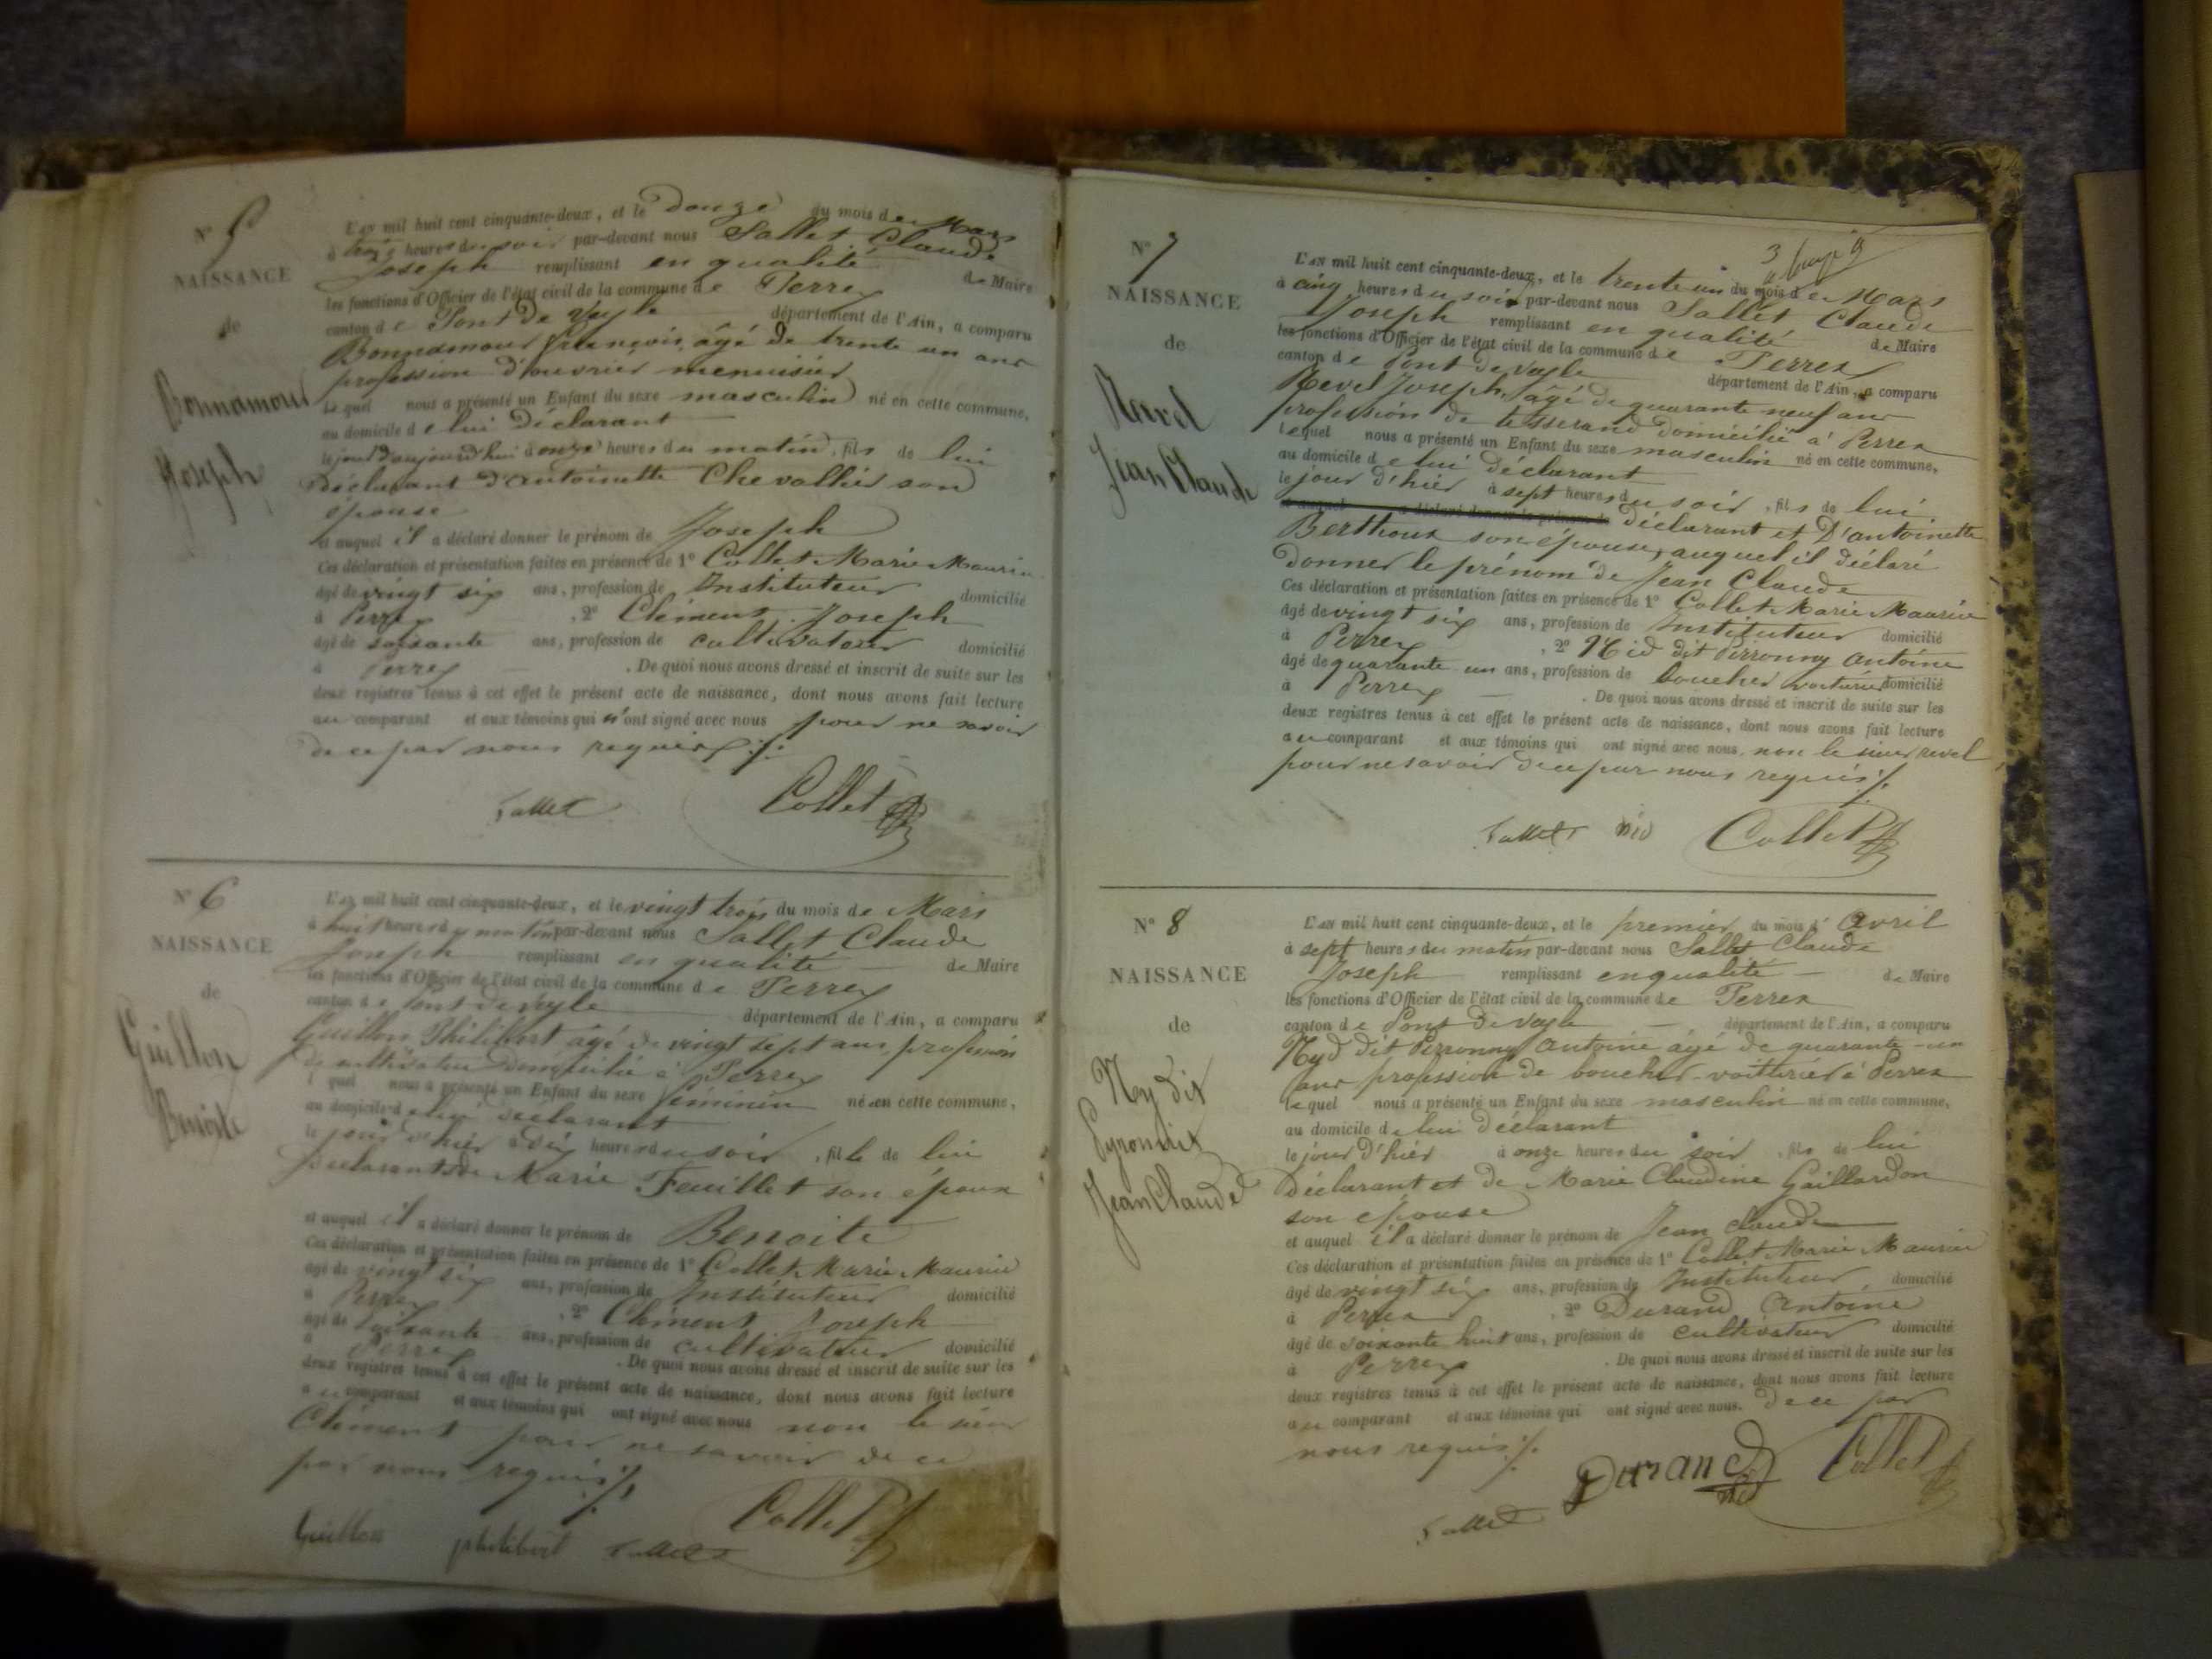 N° 5
NAISSANCE
de
Bonnamour
Joseph
L'AN mil huit cent cinquante-deux, et le Douze du mois de Mars
à trois heures du soir par-devant nous Sallet Claude
Joseph remplissant en qualité de Maire
les fonctions d'Officier de l'état civil de la commune de Perrex
canton de Pont de Veyle département de l'Ain, a comparu
Bonnamour françois, âgé de trente un ans
profession d'ouvrier menuisier
Lequel nous a présenté un Enfant du sexe masculin né en cette commune,
au domicile de lui Déclarant
le jour d'aujourd'hui à onze heures du matin, fils de lui
Déclarant D'antoinette Chevallier son
épouse
et auquel il a déclaré donner le prénom de Joseph
Ces déclaration et présentation faites en présence de 1° Collet Marie Maurice
âgé de vingt six ans, profession de Instituteur domicilié
à Perrex , 2° Clément Joseph
âgé de soixante ans, profession de cultivateur domicilié
à Perrex . De quoi nous avons dressé et inscrit de suite sur les
deux registres tenus à cet effet le présent acte de naissance, dont nous avons fait lecture
au comparant et aux témoins qui n'ont signé avec nous pour ne savoir
de ce par nous requis ./.
Sallet Collet
N° 6
NAISSANCE
de
Guillon
Benoite
L'AN mil huit cent cinquante-deux, et le vingt trois du mois de Mars
à huit heures du matin par-devant nous Sallet Claude
Joseph remplissant en qualité de Maire
les fonctions d'Officier de l'état civil de la commune de Perrex
canton de Pont de Veyle département de l'Ain, a comparu
Guillon Philibert âgé de vingt sept ans, profession
de cultivateur Domicilié à Perrex
lequel nous a présenté un Enfant du sexe féminin né en cette commune,
au domicile de lui déclarant
le jour d'hier à dix heures du soir, fille de lui
Déclarant et de Marie Feuillet son épouse
et auquel il a déclaré donner le prénom de Benoite
Ces déclaration et présentation faites en présence de 1° Collet Marie Maurice
âgé de vingt six ans, profession de Instituteur domicilié
à Perrex , 2° Clément Joseph
âgé de soixante ans, profession de cultivateur domicilié
à Perrex . De quoi nous avons dressé et inscrit de suite sur les
deux registres tenus à cet effet le présent acte de naissance, dont nous avons fait lecture
au comparant et aux témoins qui ont signé avec nous non le sieur
Clément pour ne savoir de ce
par nous requis ./.
Guillon philibert Sallet Collet
3
N° 7
NAISSANCE
de
Revel
Jean Claude
L'AN mil huit cent cinquante-deux, et le trente un du mois de Mars
à cinq heures du soir par-devant nous Sallet Claude
Joseph remplissant en qualité de Maire
les fonctions d'Officier de l'état civil de la commune de Perrex
canton de Pont de Veyle département de l'Ain, a comparu
Revel Joseph, âgé de quarante neuf ans
profession de tisserand domicilié à Perrex
Lequel nous a présenté un Enfant du sexe masculin né en cette commune,
au domicile de lui déclarant
le jour d'hier à sept heures du soir, fils de lui
Déclarant et D'antoinette
Berthoux son épouse, auquel il déclaré
donner le prénom de Jean Claude
Ces déclaration et présentation faites en présence de 1° Collet Marie Maurice
âgé de vingt six ans, profession de Instituteur domicilié
à Perrex , 2° Nid dit Perronny Antoine
âgé de quarante un ans, profession de boucher voiturier domicilié
à Perrex . De quoi nous avons dressé et inscrit de suite sur les
deux registres tenus à cet effet le présent acte de naissance, dont nous avons fait lecture
au comparant et aux témoins qui ont signé avec nous, non le sieur revel
pour ne savoir de ce par nous requis ./.
Sallet nid Collet
N° 8
NAISSANCE
de
Ny dit
Jean Claude
L'AN mil huit cent cinquante-deux, et le premier du mois d'Avril
à sept heures du matin par-devant nous Sallet Claude
Joseph remplissant en qualité de Maire
les fonctions d'Officier de l'état civil de la commune de Perrex
canton de Pont de Veyle département de l'Ain, a comparu
Nyd dit Perronny Antoine âgé de quarante-un
ans profession de boucher-voiturier à Perrex
lequel nous a présenté un Enfant du sexe masculin né en cette commune,
au domicile de lui déclarant
le jour d'hier à onze heures du soir, fils de lui
Déclarant et de Marie Claudine Gaillardon
son épouse
et auquel il a déclaré donner le prénom de Jean Claude
Ces déclaration et présentation faites en présence de 1° Collet Marie Maurice
âgé de vingt six ans, profession de Instituteur, domicilié
à Perrex , 2° Durand Antoine
âgé de soixante huit ans, profession de cultivateur domicilié
à Perrex . De quoi nous avons dressé et inscrit de suite sur les
deux registres tenus à cet effet le présent acte de naissance, dont nous avons fait lecture
au comparant et aux témoins qui ont signé avec nous. de ce par
nous requis ./.
Sallet Durand nid Collet